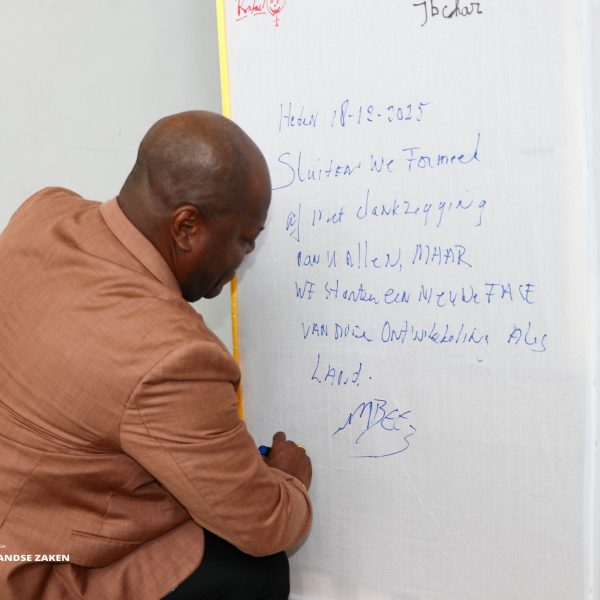 Jbchar
Heden 18-12-2025
Sluiten we Formeel
af met dankzegging
aan u allen, MAAR
WE starten een Nieuwe FASE
VAN onze Ontwikkeling Als
LAND.
MBEE
ANDSE ZAKEN